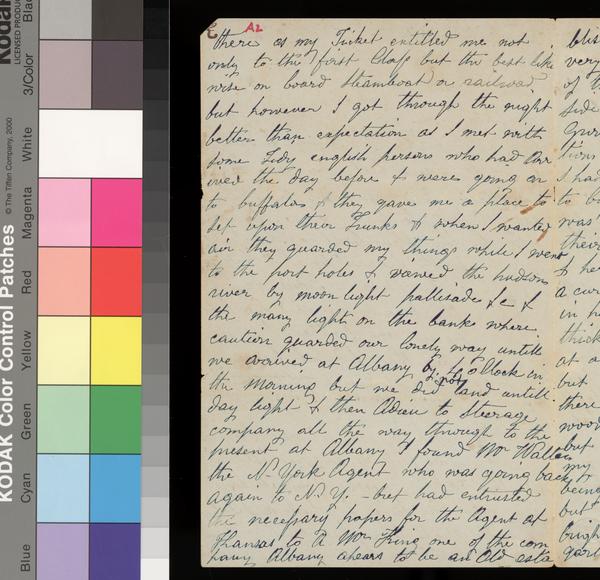 A2
there as my Ticket entitled me not
only to the first Class but the best like
wise on board Steamboat or railroad
but however I got through the night
better than expectation as I met with
some Tidy english persons who had Arr
ived the day before & were going on
to buffalos & they gave me a place to
set upon their Trunks & when I wanted
air they guarded my things while I went
to the port holes & vewed the hudson
river by moon light pallisade &c &
the many light on the banks where
caution guarded our lonely way untill
we arrived at Albany by O Clock in
the Morning but we did not land untill
day light & then Adieu to Steerage
company all the way through to the
present at Albany I found Mr
the N-York Agent who was going back
again to N.Y. - but had entrusted
the necessary papers for the Agent at
Kansas to A Mr King one of the com
pany Albany apears to be an Old esta
blis
very
of
side
I had
to
was
their
& he
a cur
in h
thick
at a
but
there
wood
but
my
being
but
brigh
KODAK Color Control Patches
© The Tiffen Company, 2000
Kodak
LICENSED PRODUCT
Blue
Cyan
Green
Yellow
Red
Magenta
White
3/Color
Black